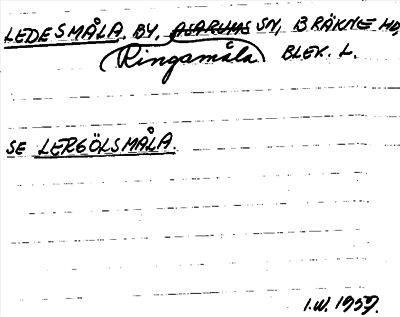 LEDESMÅLA. BY, ASARUMS SN, BRÄKNE HD,
Ringamåla BLEK. L.
SE LERGÖLSMÅLA.
I.W. 1959.